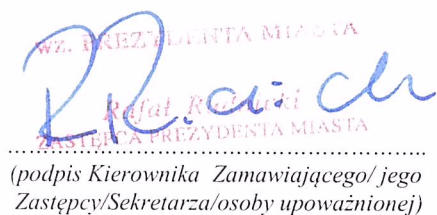 WZ. PREZYDENTA MIASTA
Rafał
ZASTĘPCA PREZYDENTA MIASTA
(podpis Kierownika Zamawiającego/ jego
Zastępcy/Sekretarza/osoby upoważnionej)